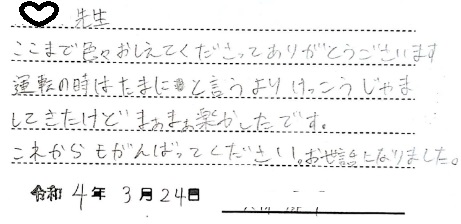 先生
ここまで色々おしえてくださってありがとうございます
運転の時はたまにと言うよりけっこうじゃま
してきたけどまぁまぁ楽かしたです。
これからもがんばってください。お世話になりました。
令和 4年 3月 24日